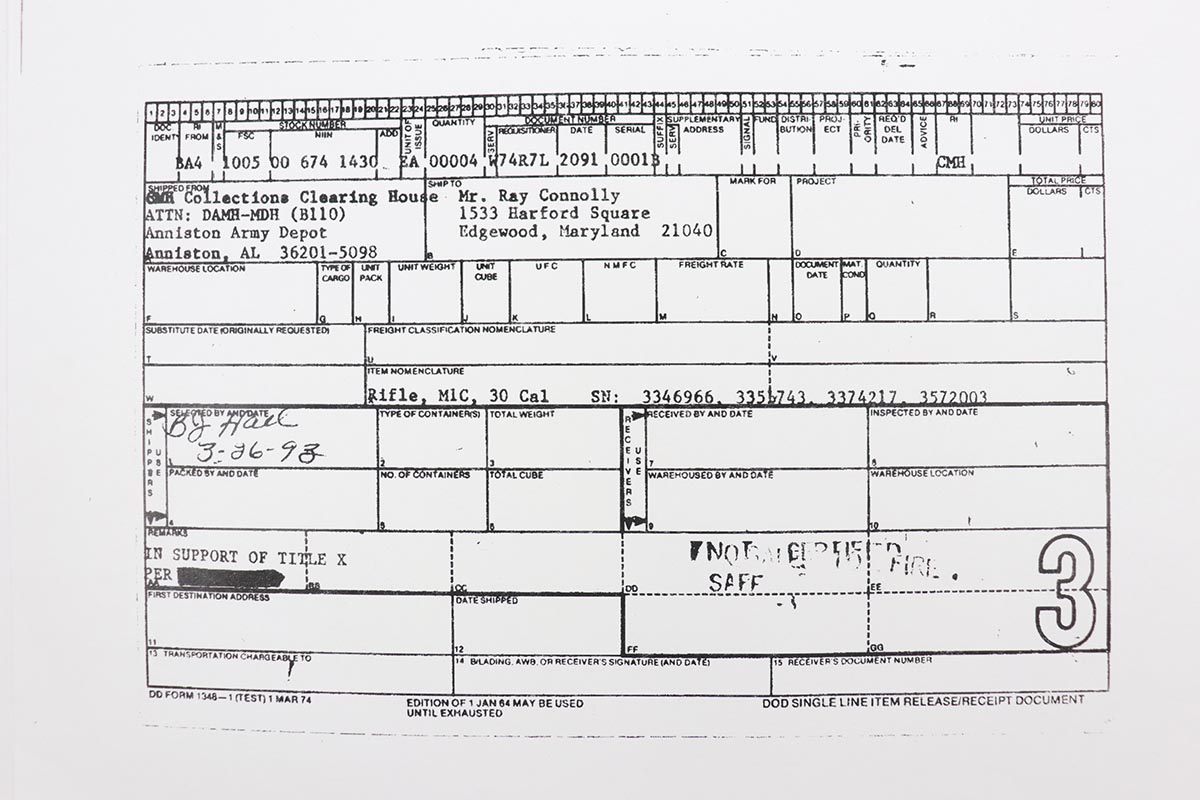 1 2 3 4 5 6 7 8 9 10 11 12 13 14 15 16 17 18 19 20 21 22 23 24 25 26 27 28 29 30 31 32 33 34 35 36 37 38 39 40 41 42 43 44 45 46 47 48 49 50 51 52 53 54 55 56 57 58 59 60 61 62 63 64 65 66 67 68 69 70 71 72 73 74 75 76 77 78 79 80
DOC IDENT RI FROM M & S STOCK NUMBER FSC NIIN ADD UNIT OF ISSUE QUANTITY SERV DOCUMENT NUMBER REQUISITIONER DATE SERIAL SUFFIX SERV SUPPLEMENTARY ADDRESS SIGNAL FUND DISTRI- BUTION PROJ- ECT PRI- ORITY REQ'D DEL DATE ADVICE RI UNIT PRICE DOLLARS CTS
BA4 1005 00 674 1430 EA 00004 W74R7L 2091 0001B CMH
SHIPPED FROM SHIP TO MARK FOR PROJECT TOTAL PRICE DOLLARS CTS
CMH Collections Clearing House Mr. Ray Connolly
ATTN: DAMH-MDH (B110) 1533 Harford Square
Anniston Army Depot Edgewood, Maryland 21040
Anniston, AL 36201-5098 B C D E
WAREHOUSE LOCATION TYPE OF CARGO UNIT PACK UNIT WEIGHT UNIT CUBE UFC NMFC FREIGHT RATE DOCUMENT DATE MAT. COND QUANTITY
F G H I J K L M N O P Q R S
SUBSTITUTE DATE (ORIGINALLY REQUESTED) FREIGHT CLASSIFICATION NOMENCLATURE
T U V
ITEM NOMENCLATURE
W Rifle, M1C, 30 Cal SN: 3346966, 3374217, 3572003
SHIPPERS USE SELECTED BY AND DATE TYPE OF CONTAINER(S) TOTAL WEIGHT RECEIVERS USE RECEIVED BY AND DATE INSPECTED BY AND DATE
BJ Hall
3-26-93
1 2 3 7 8
PACKED BY AND DATE NO. OF CONTAINERS TOTAL CUBE WAREHOUSED BY AND DATE WAREHOUSE LOCATION
4 5 6 9 10
REMARKS
IN SUPPORT OF TITLE X NOT FIRE.
PER SAFE
AA BB CC DD EE 3
FIRST DESTINATION ADDRESS DATE SHIPPED
11 12 FF GG
13 TRANSPORTATION CHARGEABLE TO 14 B/LADING, AWB, OR RECEIVER'S SIGNATURE (AND DATE) 15 RECEIVER'S DOCUMENT NUMBER
DD FORM 1348-1 (TEST) 1 MAR 74 EDITION OF 1 JAN 64 MAY BE USED DOD SINGLE LINE ITEM RELEASE/RECEIPT DOCUMENT
UNTIL EXHAUSTED